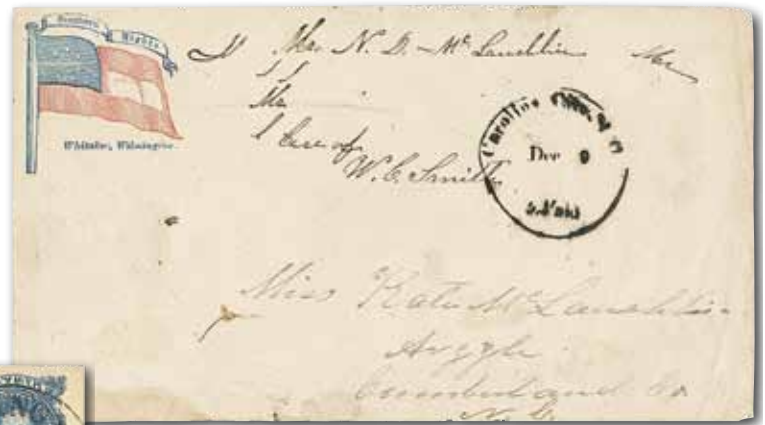 Southern Rights
Whitaker, Wilmington
Mr. N. D. McLauchlin
Mr
Care of
W. C. Smith
Carolina
Dec 9
5. Paid
Miss Kate McLauchlin
Argyle
Cumberland Co
N. C.